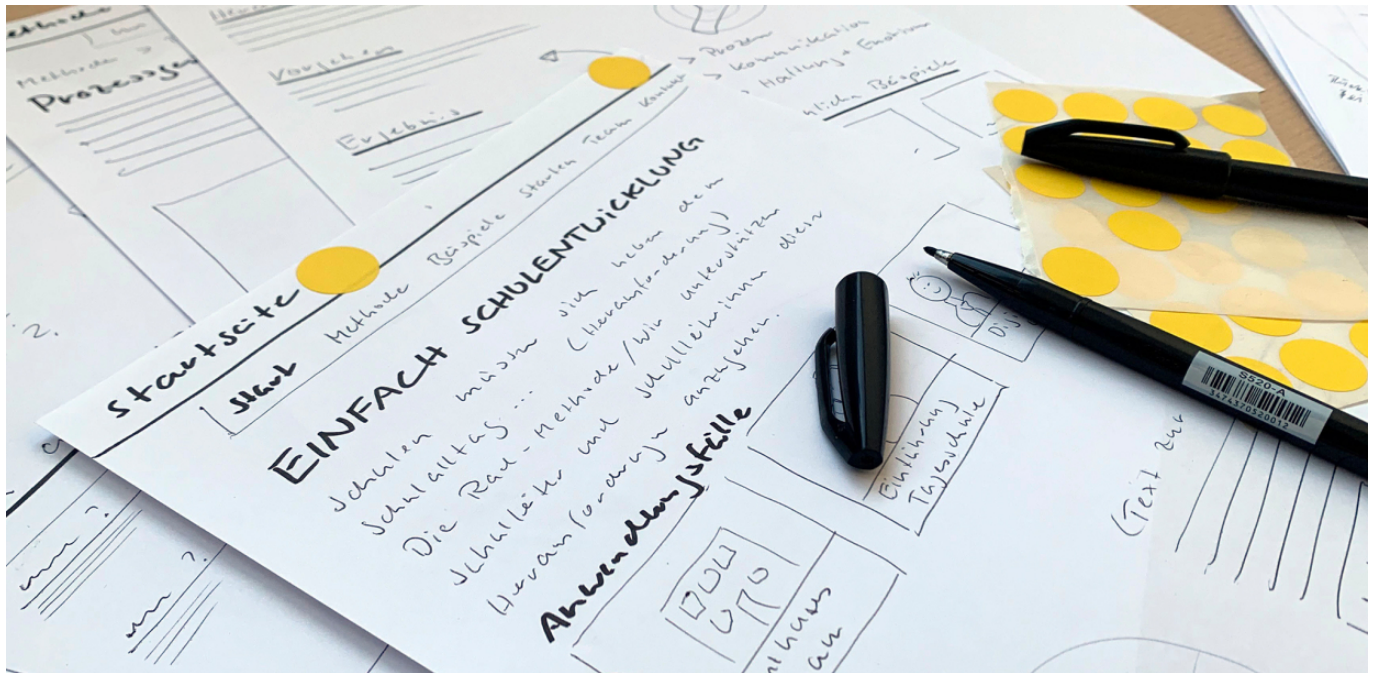 Methode
Prozessger
Vorgehen
Ergebnis
> Prozess
> Kommunikation
> Haltung + Emotionen
Beispiele
Startseite
Start Methode Beispiele Starten Team Kontakt
EINFACH SCHULENTWICKLUNG
Schulen müssen sich neben dem
Schulalltag... (Herausforderung)
Die Rad-Methode/Wir unterstützen
Schulleiter und Schulleiterinnen diese
Herausforderungen anzugehen.
Anwendungsfälle
Einführung
Tagesschule
(Text zur
S520-A
3474370520012